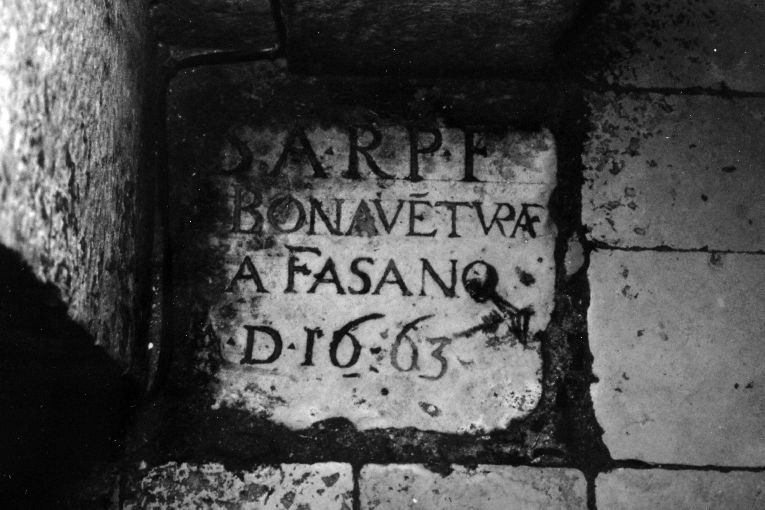 S·A·R·P·F
BONAVĒTVRÆ
A FASANO
A·D·1663